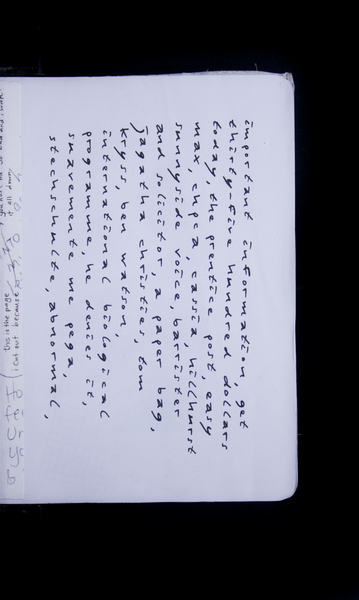 important information, get
thirty-five hundred dollars
today, the prentice post, easy
max, chpca, cassia, hillhurst
sunnyside voice, barrister
and solicitor, a paper bag,
jagatha christies, tom
kryss, ben watson,
international biological
programme, he denies it,
suavemente me pega,
stechschulte, abnormal,
this is the page
I cut out because
it all down